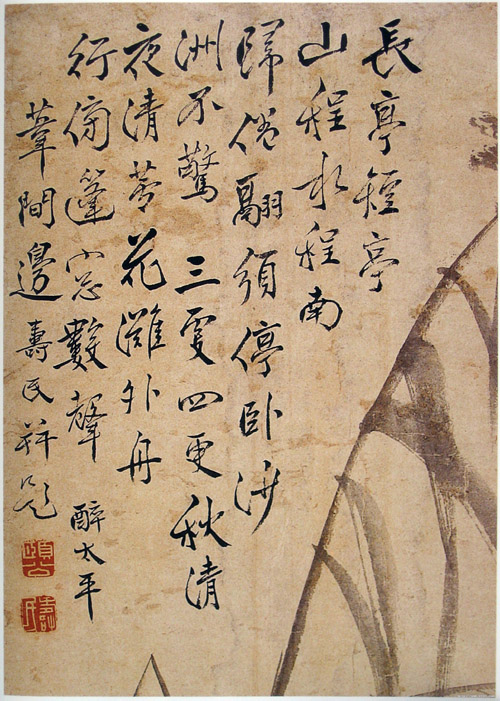 長亭短亭
山程水程南
歸倦翮須停臥沙
洲不驚 三更四更秋清
夜清蘆花灘外舟
行傍篷窗數聲 醉太平
葦間邊壽民并題
頤公
壽民